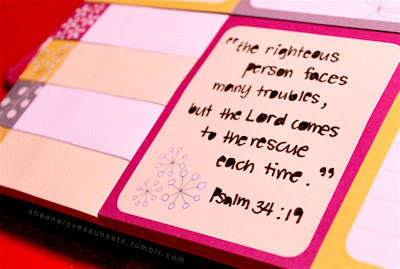 "the righteous
person faces
many troubles,
but the Lord comes
to the rescue
each time."
Psalm 34:19
sheenalovessunsets.tumblr.com